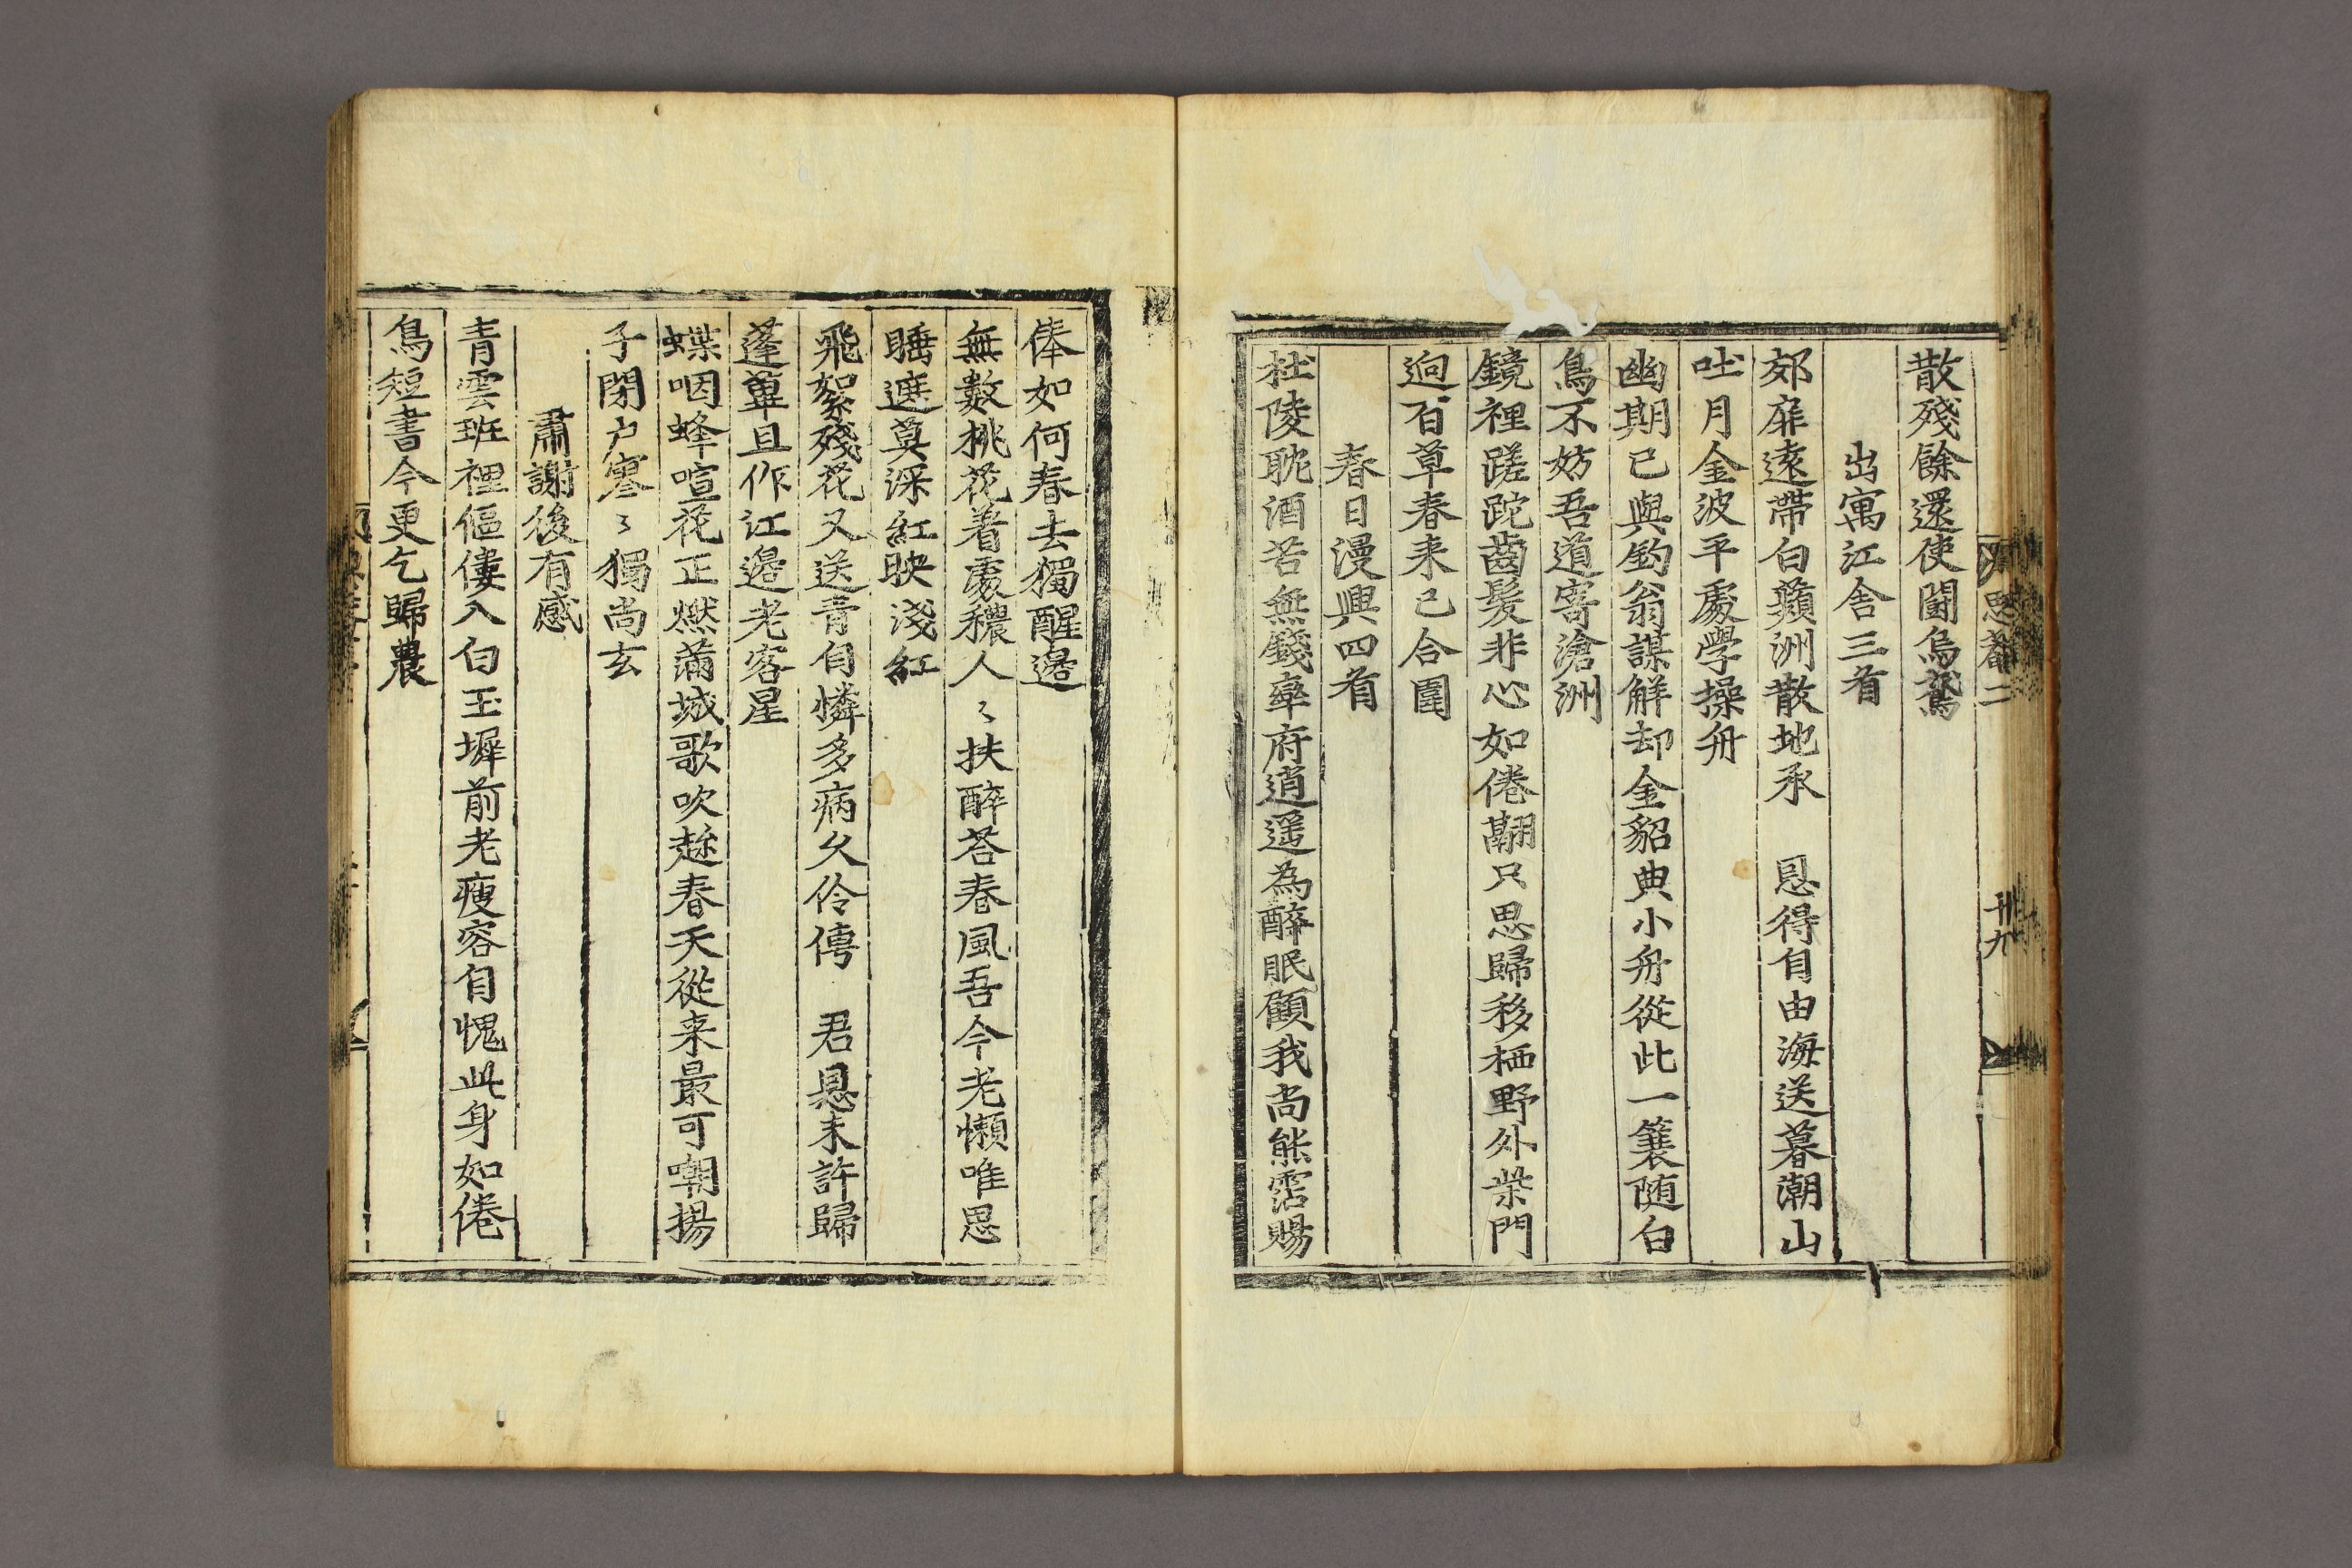 散殘餘還使鬪烏鴛
出寓江舍三首
郊扉遠帶白蘋洲散地承 恩得自由海送暮潮山
吐月金波平處學操舟
幽期已與釣翁謀解却金貂典小舟從此一簑随白
鳥不妨吾道寄滄洲
鏡裡蹉跎齒髮非心如倦翮只思歸移栖野外柴門
逈百草春来已合圍
春日漫興四首
杜陵耽酒苦無錢率府逍遥為醉眠顧我尚能霑賜
俸如何春去獨醒邊
無數桃花着處穠人〻扶醉荅春風吾今老懶唯思
睡遮莫深紅映淺紅
飛絮殘花又送青自憐多病久伶俜 君恩未許歸
蓬蓽且作江邊老客星
蝶咽蜂喧花正燃滿城歌吹趂春天從来最可嘲揚
子閉戶寥〻獨尚玄
肅謝後有感
青雲班裡傴僂入白玉墀前老瘦容自愧此身如倦
鳥短書今更乞歸農
思菴 二
卄九